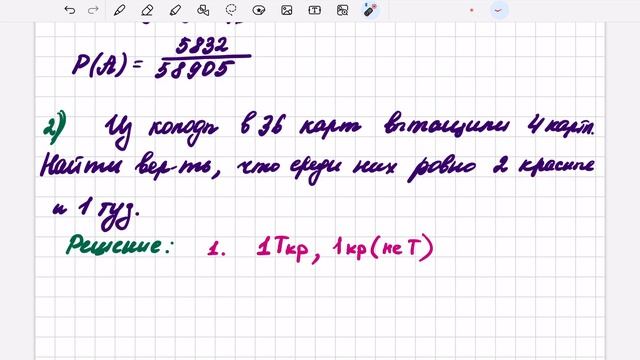 P(A) = 5832 / 58905
2) Из колоды в 36 карт вытащили 4 карты.
Найти вер-ть, что среди них ровно 2 красные
и 1 туз.
Решение: 1. 1Ткр, 1кр(не Т)